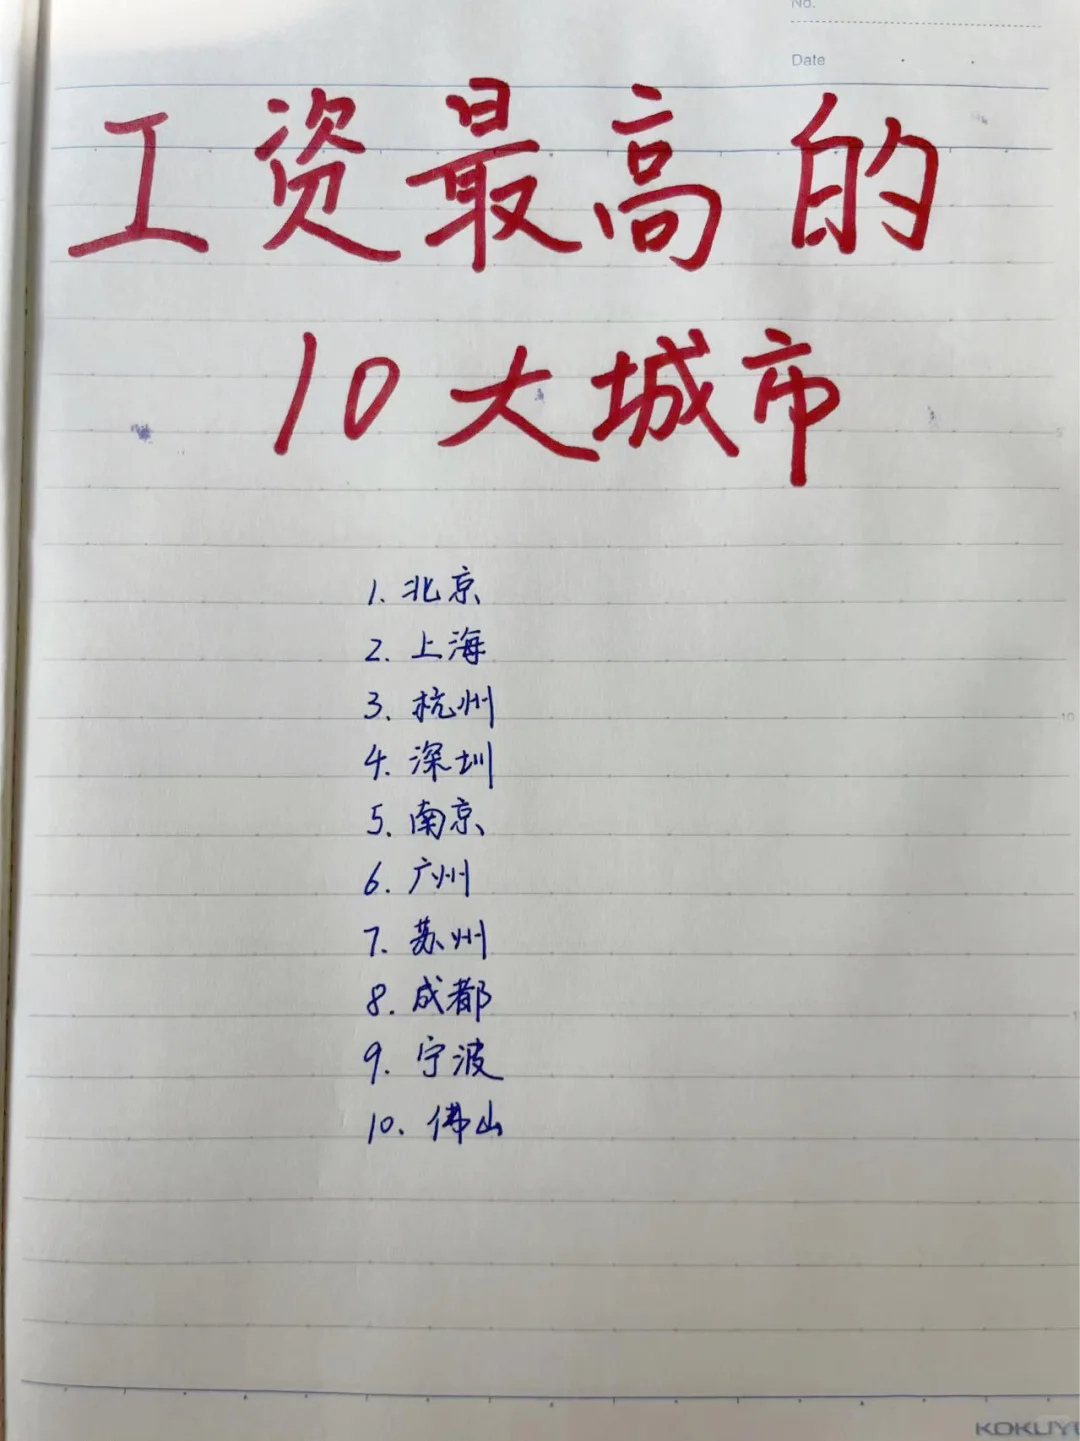 No.
Date
工资最高的
10大城市
5
1. 北京
2. 上海
10
3. 杭州
4. 深圳
5. 南京
6. 广州
7. 苏州
8. 成都
9. 宁波
10. 佛山
KOKUYO